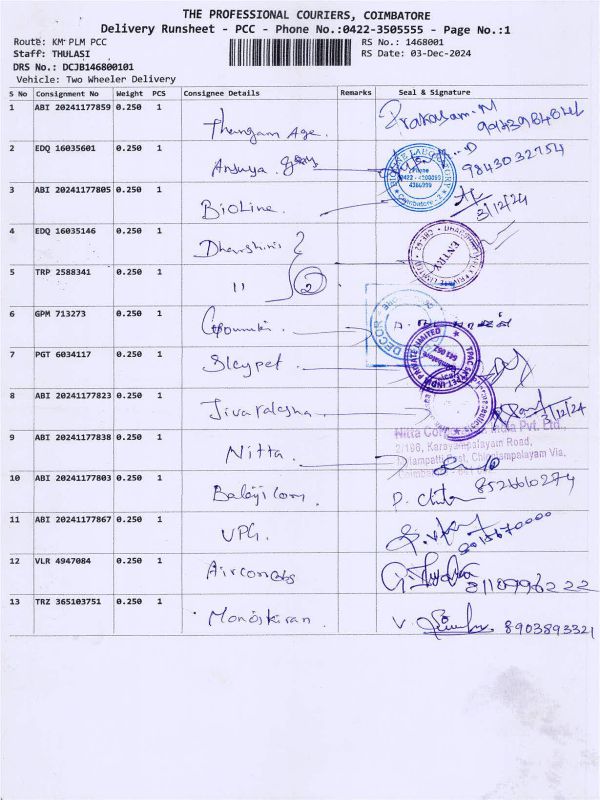 THE PROFESSIONAL COURIERS, COIMBATORE
Delivery Runsheet - PCC - Phone No.:0422-3505555 - Page No.:1
Route: KM PLM PCC
RS No.: 1468001
Staff: THULASI
RS Date: 03-Dec-2024
DRS No.: DCJB146800101
Vehicle: Two Wheeler Delivery
S No Consignment No Weight PCS Consignee Details Remarks Seal & Signature
1 ABI 20241177859 0.250 1 Thangam Age. Prakasam.M
2 EDQ 16035601 0.250 1 Ansuya 9843032754
3 ABI 20241177805 0.250 1 BioLine. 3/12/24
BIOLINE LABORATORY Phone 0422 - 4300099 4366999 Coimbatore - 2
4 EDQ 16035146 0.250 1 Dharshinis
ENTRY
5 TRP 2588341 0.250 1 11 2
6 GPM 713273 0.250 1
DECOR
7 PGT 6034117 0.250 1 Skypet
PRIVATE LIMITED Coimbatore 641 062
8 ABI 20241177823 0.250 1 3/12/24
9 ABI 20241177838 0.250 1 Nitta
Nitta India Pvt. Ltd.,
2/186, Karayampalayam Road,
Chinniampalayam Via,
10 ABI 20241177803 0.250 1 Balaji Com. 8526610274
11 ABI 20241177867 0.250 1 UPG.
12 VLR 4947084 0.250 1
13 TRZ 365103751 0.250 1 Monoskiran. V. 8903893321